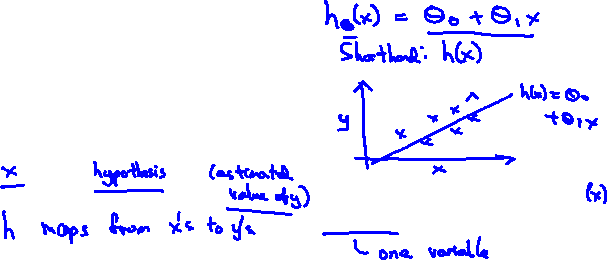 hθ(x) = θ₀ + θ₁x
Shorthand: h(x)
h(x) = θ₀
+ θ₁x
y
x
x hypothesis (estimated
value of y)
(x)
h maps from x's to y's
one variable